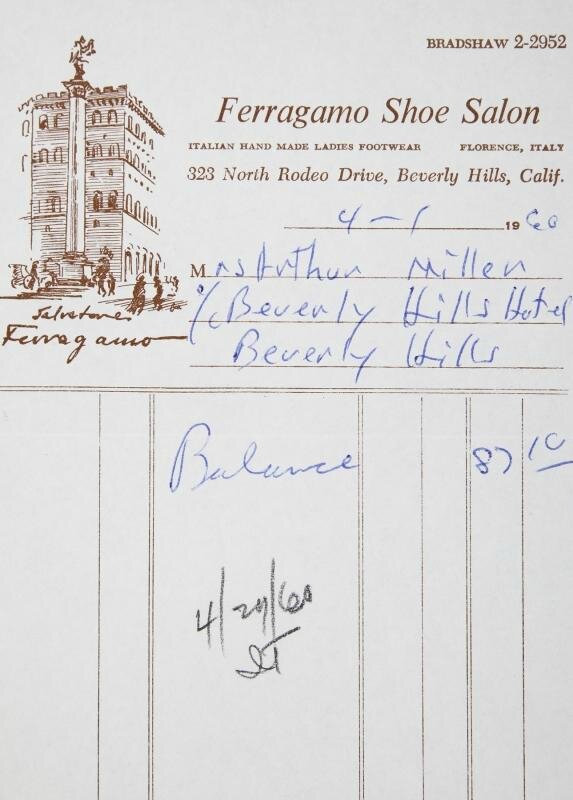 BRADSHAW 2-2952
Ferragamo Shoe Salon
ITALIAN HAND MADE LADIES FOOTWEAR FLORENCE, ITALY
323 North Rodeo Drive, Beverly Hills, Calif.
4-1 1960
Mrs Arthur Miller
c/o Beverly Hills Hotel
Beverly Hills
Salvatore
Ferragamo
Balance 87 10
4/29/60